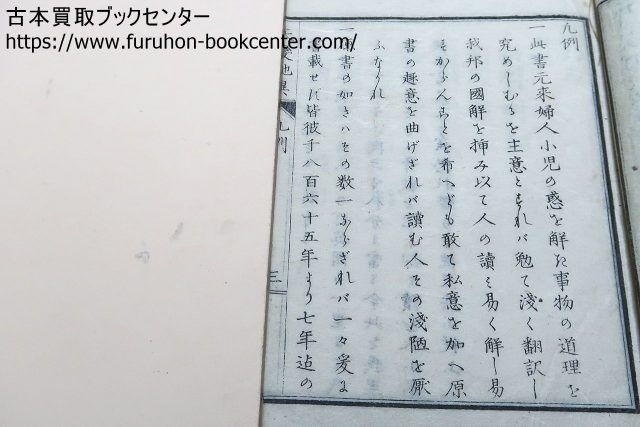 古本買取ブックセンター
https://www.furuhon-bookcenter.com/
凡例
一此書元来婦人小児の惑を解た事物の道理を
究めしむるを主意とすれバ勉て浅く翻訳し
我邦の國解を挿み以て人の讀ミ易く解し易
からんことを希へども敢て私意を加へ原
書の趣意を曲げざれバ讀む人その淺陋を厭
ふなかれ
一原書の如きハその数一ならざれバ一々爰に
載せに皆彼千八百六十五年より七年迠の
凡例
三